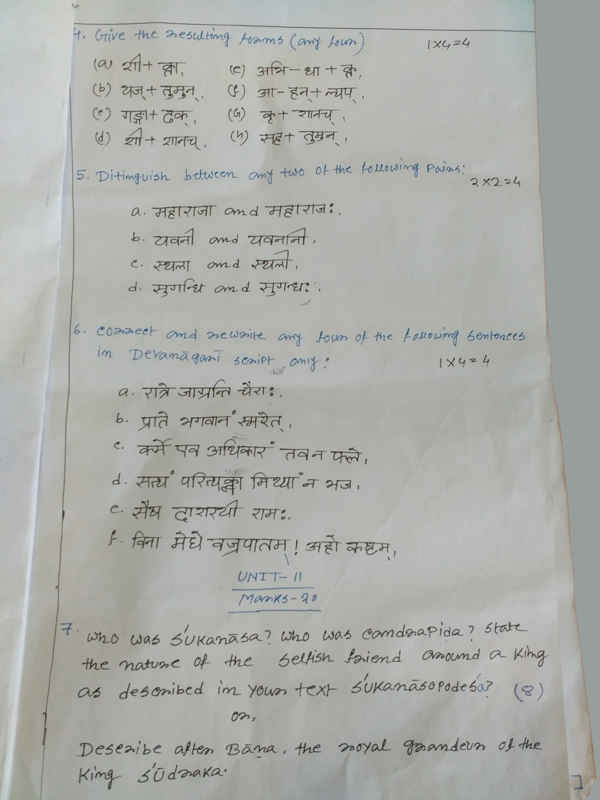 4. Give the resulting forms (any four) 1x4=4
(a) शी + क्त्वा, (e) अभि - धा + क्त,
(b) यज् + तुमुन्, (f) आ - हन् + ल्यप्,
(c) गङ्गा + ढक्, (G) कृ + शानच्,
(d) शी + शानच्, (h) सह + तुमुन्,
5. Ditinguish between any two of the following Pairs: 2x2=4
a. महाराजा and महाराजः.
b. यवनी and यवनानी,
c. स्थला and स्थली,
d. सुगन्धि and सुगन्धः.
6. correct and rewrite any four of the following sentences
in Devanāgarī script only: 1x4=4
a. रात्रे जाग्रन्ति चैराः.
b. प्राते भगवानं स्मरेत्,
c. कर्मे एव अधिकारं तव न फले,
d. सत्यं परित्यक्त्वा मिथ्यां न भज,
e. सैष दाशरथी रामः.
f. विना मेघे वज्रपातम्! अहो कष्टम्,
UNIT-II
Marks-20
7. Who was Śukanāsa? Who was candrapida? State
the nature of the selfish friend around a King
as described in your text Śukanāsopodeśa? (8)
or,
Describe after Bāṇa, the royal grandeur of the
King Śūdraka.